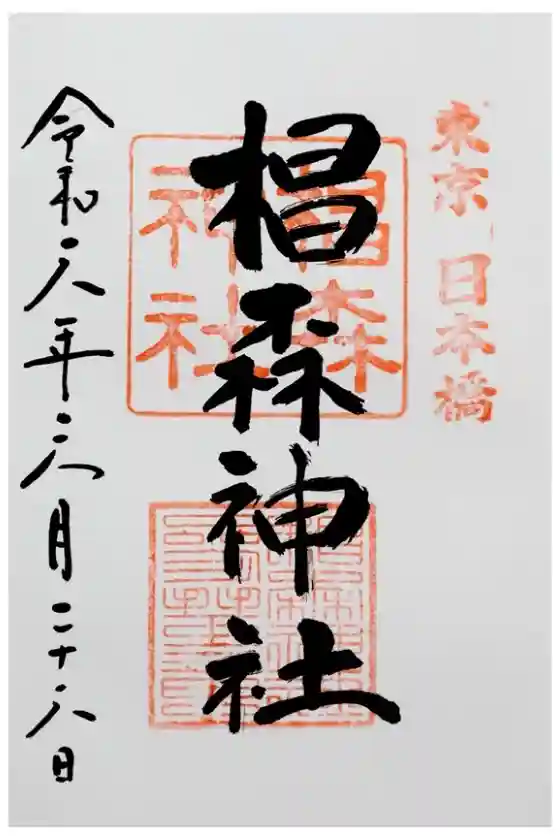 東京 日本橋
椙森神社
椙森神社
令和八年
月二十八日